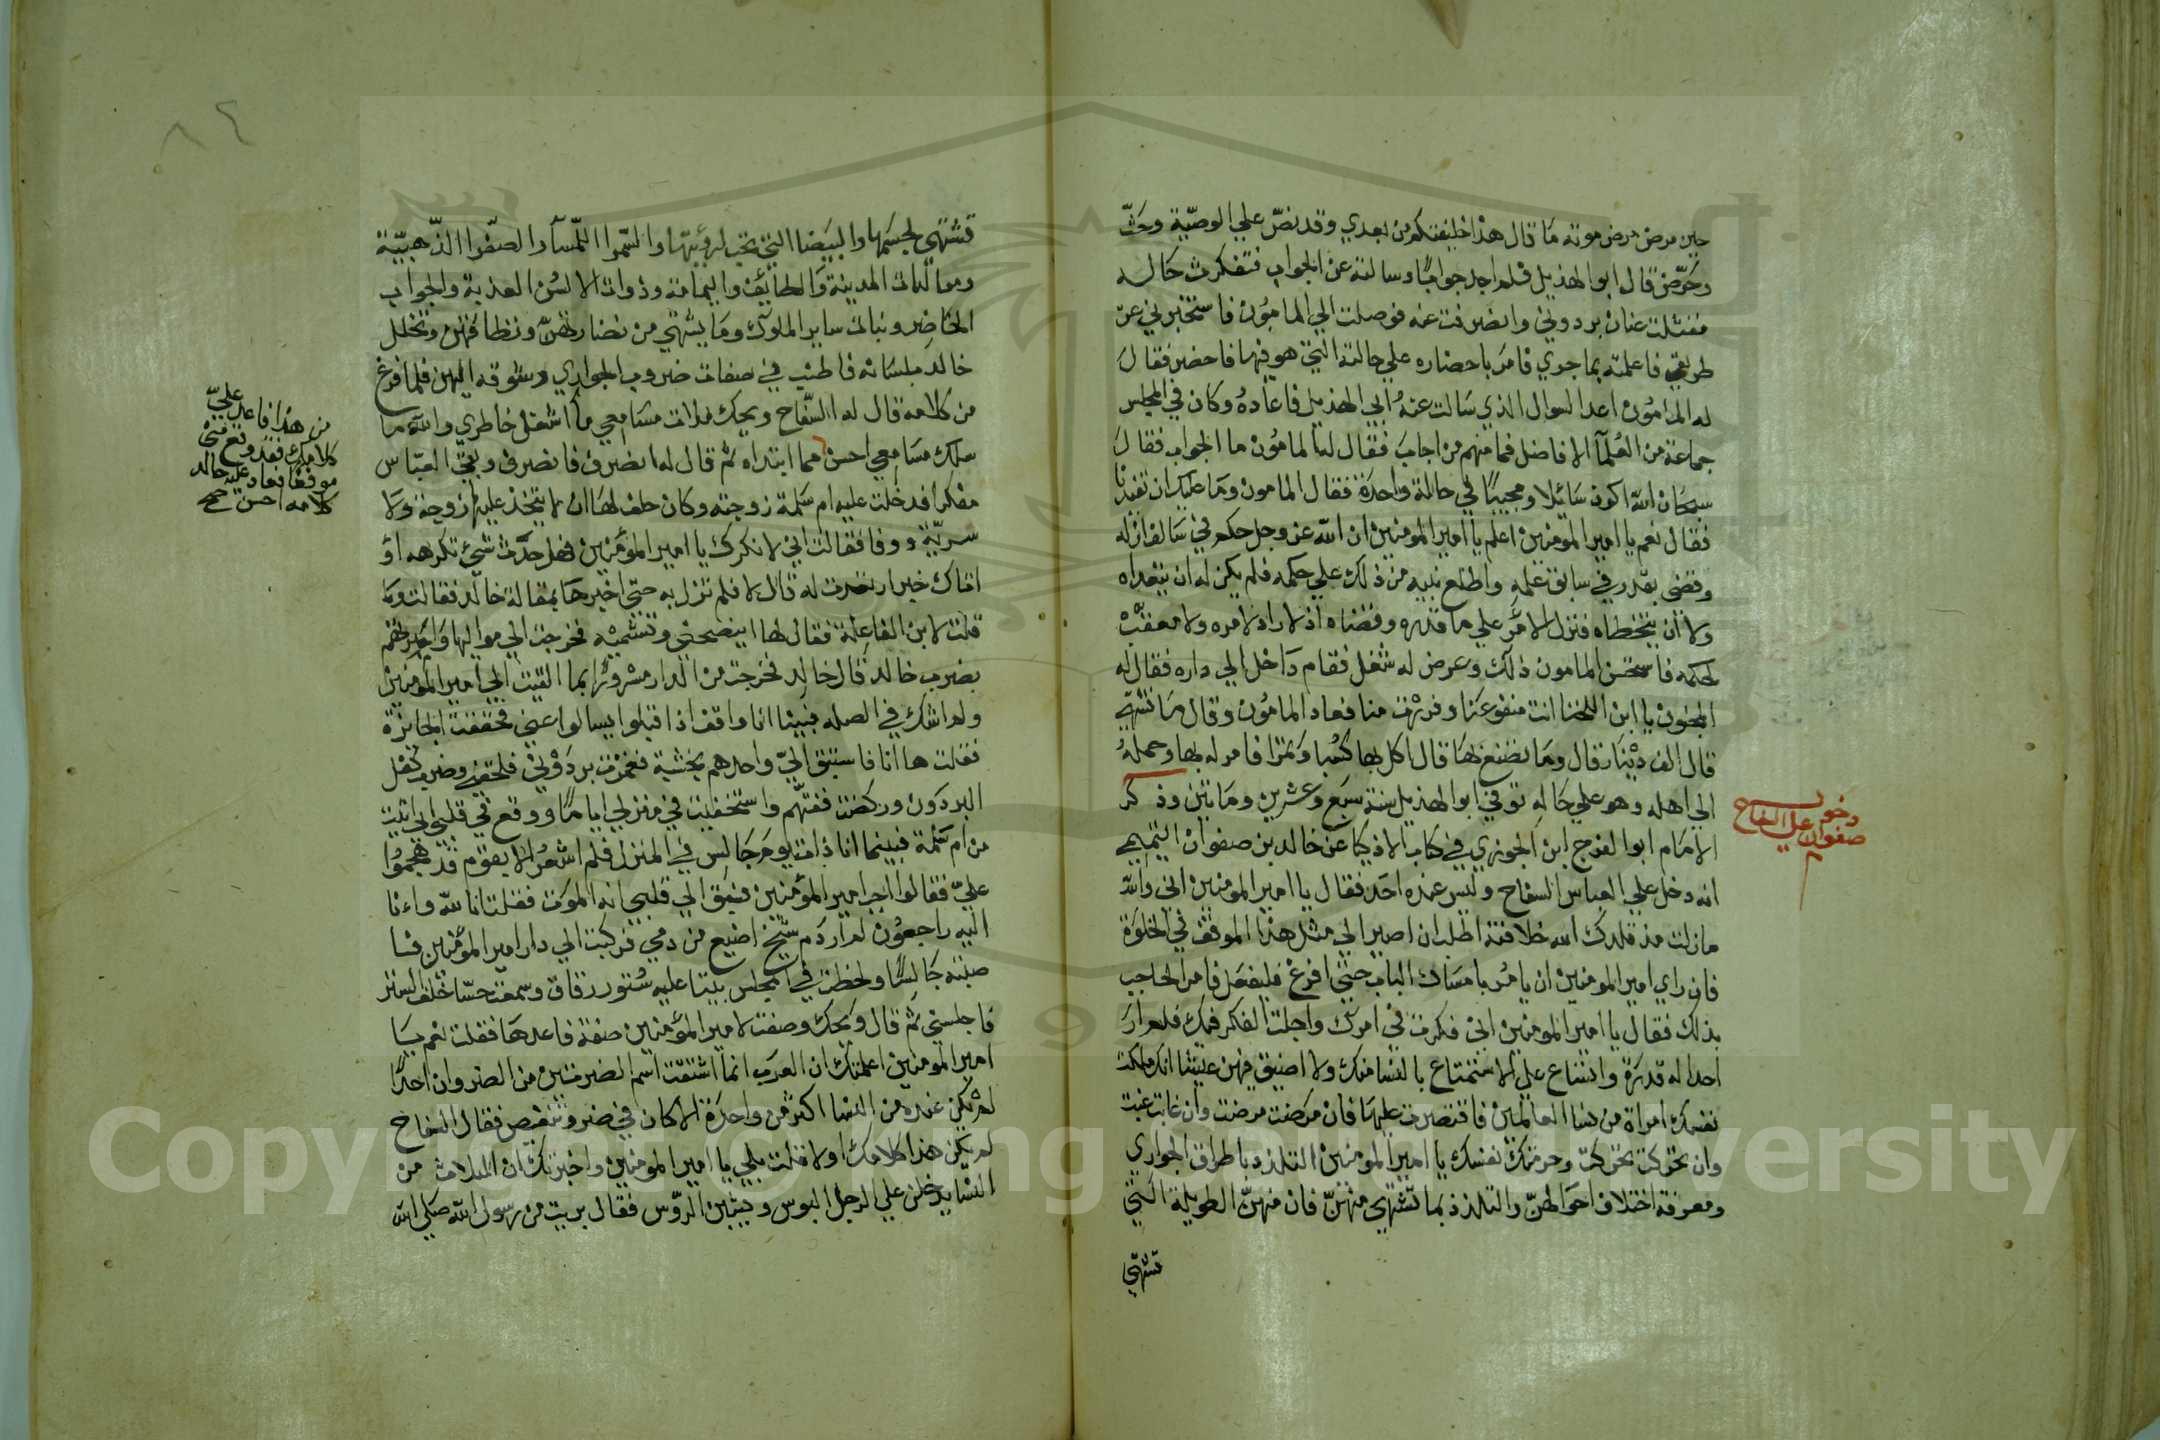 حين مرض مرض موته ما قال هذا خليفتكم من بعدي وقد نصّ علي الوصيّة وحثّ
وحرّض قال ابو الهذيل فلم اجد جوابًا وسالته عن الجواب فتفكرت حاله
عنان بردوني وانصرفت عنه فوصلت الي المامون فاستخبرني عن
طريقي فاعلمته بما جري فامر باحضاره علي حالته التي هو فيها فاحضر فقال
له المامون اعد السوال الذي سالت عنه ابي الهذيل فاعاده وكان في المجلس
جماعة من العلمآ الافاضل فما منهم من اجاب فقال له المامون ما الجواب فقال
سبحان الله اكون سائلا ومجيبًا في حالة واحدة فقال المامون وما عليك ان تفيدنا
فقال نعم يا امير المؤمنين اعلم يا امير المومنين ان الله عز وجل حكم في سالف ازله
وقضي بقدر في سابق علمه واطلع نبيه من ذلك علي حكمه فلم يكن له ان يتعداه
ولا ان يتخطاه فنزل الامر علي ما قدره وقضاه اذ لا راد لامره ولا معقب
لحكمه فاستحسن المامون ذلك وعرض له شغل فقام داخل الي داره فقال له
المجنون يا ابن اللخنا انت منفوعنا وفررت منا فعاد المامون وقال ما تشتهي
قال الف دينار قال وما تصنع بها قال اكل بها كسبا وتمرا فامر له بها وحمله
الي اهله وهو علي حاله توفي ابو الهذيل سنة سبع وعشرين ومايتين وذكر
الامام ابو الفرج ابن الجوزي في كتاب الاذكيا عن خالد بن صفوان التميمي
انه دخل علي العباس السفاح وليس عنده احد فقال يا امير المومنين اني والله
مازلت منذ قلدك الله خلافته اطلب ان اصير الي مثل هذا الموقف في الخلوة
فان راي امير المومنين ان يامر بامساك الباب حتي افرغ فليفعل فامر الحاجب
بذلك فقال يا امير المومنين اني فكرت في امرك واجلت الفكر فيك فلم ار
احدا له قدرة واتساع علي الاستمتاع بالنسا منك ولا اضيق فيهن عيشا انك ملكت
نفسك امراة من نسا العالمين فاقتصرت عليها فان مرضت مرضت وان غابت غبت
وان تحركت تحركت وحرمت نفسك يا امير المومنين التلذذ باطراف الجواري
ومعرفة اختلاف احوالهنّ والتلذذ بما تشتهي منهنّ فان منهنّ الطويلة التي
تشتهي
دخول
صفوان علي السفاح
تشتهي لجسمها والبيضا التي تحب لرؤيتها والسّمرا اللّعسآ والصّفرا الذهبيّة
ومولدات المدينة والطايف واليمامة وذوات الالسن العذبة والجواب
الحاضر وبنات ساير الملوك وما يشتهي من نضارتهنّ ونظافتهن وتخلل
خالد بلسانه فاطنب في صفات ضروب الجواري وشوقه اليهن فلما فرغ
من كلامه قال له السّفاح ويحك ملات مسامعي ما اشغل خاطري والله ما
سلك مسامعي احسن مما ابتداه ثم قال له انصرف فانصرف وبقي العبّاس
مفكرا فدخلت عليه ام سلمة زوجته وكان حلف لها ان لا يتخذ عليها زوجة ولا
سريّة ووفا فقالت اني لانكرك يا امير المؤمنين فهل حدث شيء تكرهه او
اتاك خبر ارتعدت له قال لا فلم تزل به حتي اخبرها بمقالة خالد فقالت وما
قلت لابن الفاعلة فقال لها اينصحني وتشتميه فخرجت الي مواليها وامرتهم
بضرب خالد قال خالد فخرجت من الدار مسرورًا بما القيت الي امير المؤمنين
ولم اشك في الصله فبينا انا واقف اذ اقبلوا يسالوا عني فحققت الجائزة
فقلت ها انا فاستبق اليّ واحدهم بخشبة فغمزت بردوني فلحقني وضرب كفل
البردون وركضت ففتهم واستخفيت في منزلي اياما ووقع في قلبي اني اتيت
من ام سلمة فبينما انا ذات يوم جالس في المنزل فلم اشعر الا بقوم قد هجموا
عليّ فقالوا اجب امير المؤمنين فسبق الي قلبي انه الموت فقلت انا لله وانا
اليه راجعون لم ار دم شيخ اضيع من دمي فركبت الي دار امير المؤمنين فا
صبته جالسًا ولحظت في المجلس بيتا عليه ستور رقاق وسمعت حسًا خلف الستر
فاجلسني ثم قال ويحك وصفت لامير المؤمنين صفة فاعدها فقلت نعم يا
امير المومنين اعلمتك ان العرب انما اشتقت اسم الضرتين من الضر وان احدًا
لم يكن عنده من النسا اكثر من واحدة الا كان في ضر وتنغيص فقال السفاح
لم يكن هذا كلامك اولا قلت بلي يا امير المومنين واخبرتك ان الثلاث من
النسا يدخلن علي الرجل البوس ويشبن الروس فقال بريت من رسول الله صلي الله
من هذا فاعد عليّ
كلامك فقد وقع مني
موقعًا فعاد عليه خالد
كلامه احسن صح
٨٤
Copyright © King Saud University